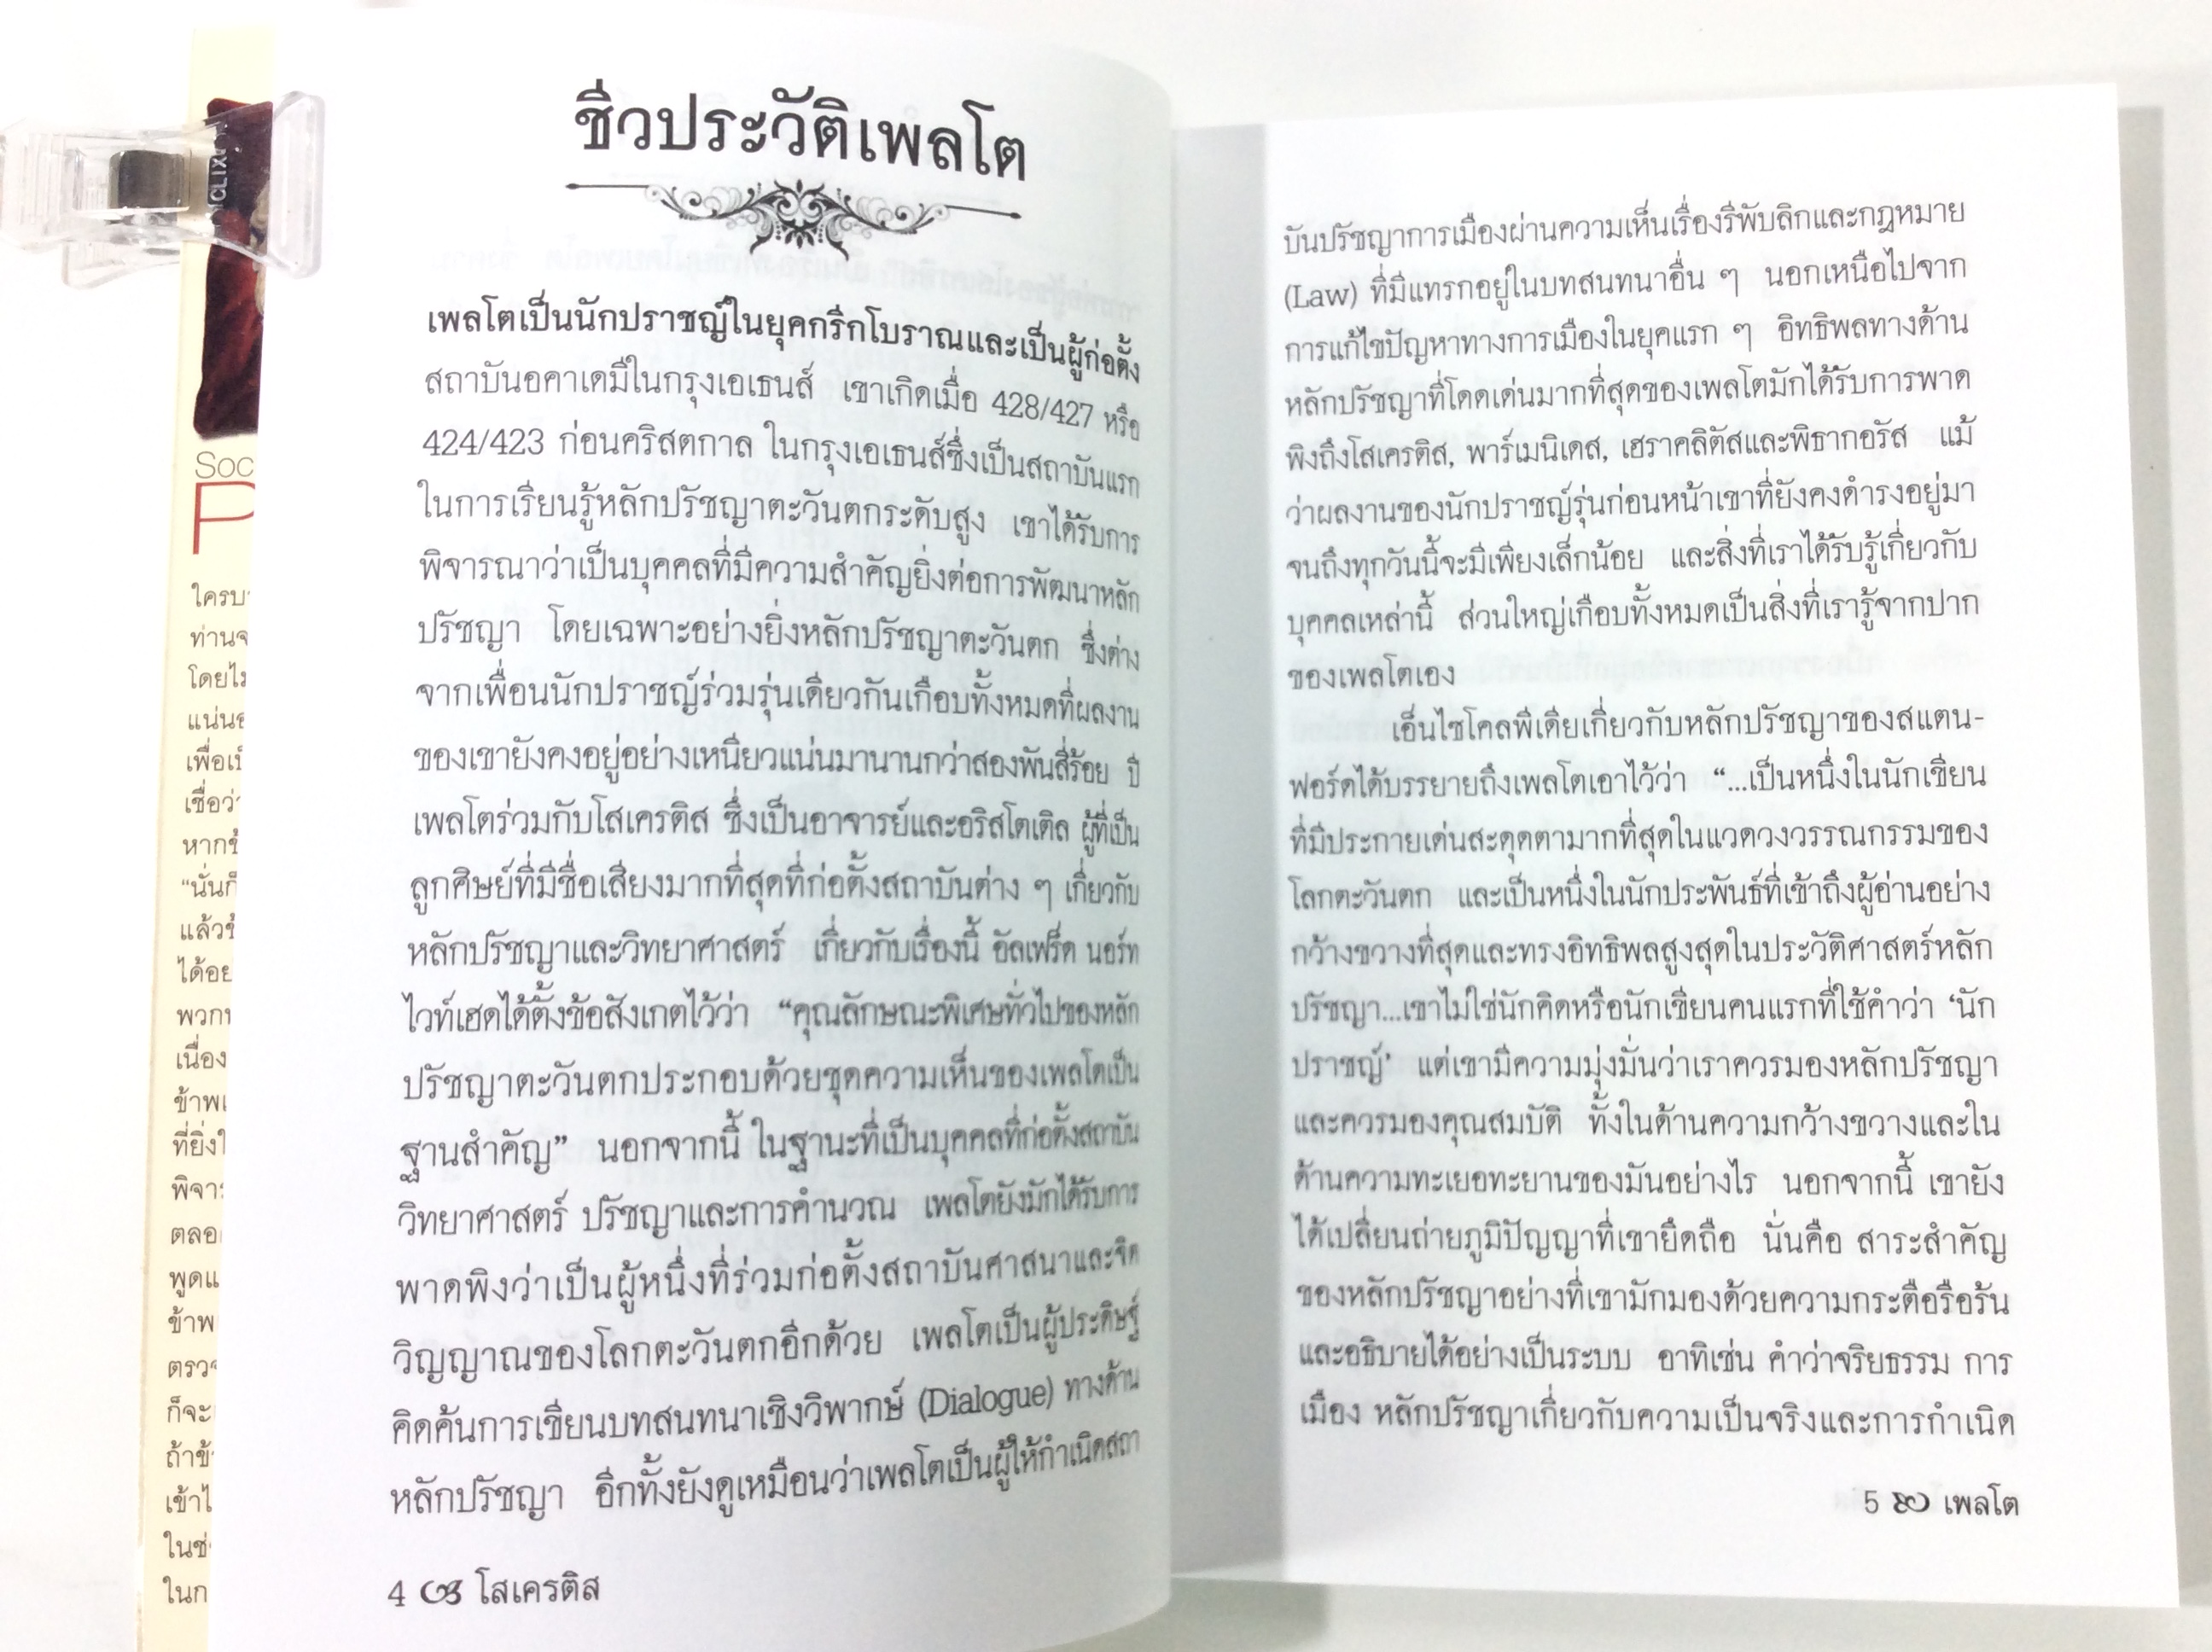 ชีวประวัติเพลโต
เพลโตเป็นนักปราชญ์ในยุคกรีกโบราณและเป็นผู้ก่อตั้ง
สถาบันอคาเดมีในกรุงเอเธนส์ เขาเกิดเมื่อ 428/427 หรือ
424/423 ก่อนคริสตกาล ในกรุงเอเธนส์ซึ่งเป็นสถาบันแรก
ในการเรียนรู้หลักปรัชญาตะวันตกระดับสูง เขาได้รับการ
พิจารณาว่าเป็นบุคคลที่มีความสำคัญยิ่งต่อการพัฒนาหลัก
ปรัชญา โดยเฉพาะอย่างยิ่งหลักปรัชญาตะวันตก ซึ่งต่าง
จากเพื่อนนักปราชญ์ร่วมรุ่นเดียวกันเกือบทั้งหมดที่ผลงาน
ของเขายังคงอยู่อย่างเหนียวแน่นมานานกว่าสองพันสี่ร้อย ปี
เพลโตร่วมกับโสเครติส ซึ่งเป็นอาจารย์และอริสโตเติล ผู้ที่เป็น
ลูกศิษย์ที่มีชื่อเสียงมากที่สุดที่ก่อตั้งสถาบันต่าง ๆ เกี่ยวกับ
หลักปรัชญาและวิทยาศาสตร์ เกี่ยวกับเรื่องนี้ อัลเฟร็ด นอร์ท
ไวท์เฮดได้ตั้งข้อสังเกตไว้ว่า “คุณลักษณะพิเศษทั่วไปของหลัก
ปรัชญาตะวันตกประกอบด้วยชุดความเห็นของเพลโตเป็น
ฐานสำคัญ” นอกจากนี้ ในฐานะที่เป็นบุคคลที่ก่อตั้งสถาบัน
วิทยาศาสตร์ ปรัชญาและการคำนวณ เพลโตยังมักได้รับการ
พาดพิงว่าเป็นผู้หนึ่งที่ร่วมก่อตั้งสถาบันศาสนาและจิต
วิญญาณของโลกตะวันตกอีกด้วย เพลโตเป็นผู้ประดิษฐ์
คิดค้นการเขียนบทสนทนาเชิงวิพากษ์ (Dialogue) ทางด้าน
หลักปรัชญา อีกทั้งยังดูเหมือนว่าเพลโตเป็นผู้ให้กำเนิดสถา
4 โสเครติส
บันปรัชญาการเมืองผ่านความเห็นเรื่องรีพับลิกและกฎหมาย
(Law) ที่มีแทรกอยู่ในบทสนทนาอื่น ๆ นอกเหนือไปจาก
การแก้ไขปัญหาทางการเมืองในยุคแรก ๆ อิทธิพลทางด้าน
หลักปรัชญาที่โดดเด่นมากที่สุดของเพลโตมักได้รับการพาด
พิงถึงโสเครติส, พาร์เมนิเดส, เฮราคลิตัสและพิธากอรัส แม้
ว่าผลงานของนักปราชญ์รุ่นก่อนหน้าเขาที่ยังคงดำรงอยู่มา
จนถึงทุกวันนี้จะมีเพียงเล็กน้อย และสิ่งที่เราได้รับรู้เกี่ยวกับ
บุคคลเหล่านี้ ส่วนใหญ่เกือบทั้งหมดเป็นสิ่งที่เรารู้จากปาก
ของเพลโตเอง
เอ็นไซโคลพีเดียเกี่ยวกับหลักปรัชญาของสแตน-
ฟอร์ดได้บรรยายถึงเพลโตเอาไว้ว่า “...เป็นหนึ่งในนักเขียน
ที่มีประกายเด่นสะดุดตามากที่สุดในแวดวงวรรณกรรมของ
โลกตะวันตก และเป็นหนึ่งในนักประพันธ์ที่เข้าถึงผู้อ่านอย่าง
กว้างขวางที่สุดและทรงอิทธิพลสูงสุดในประวัติศาสตร์หลัก
ปรัชญา...เขาไม่ใช่นักคิดหรือนักเขียนคนแรกที่ใช้คำว่า ‘นัก
ปราชญ์’ แต่เขามีความมุ่งมั่นว่าเราควรมองหลักปรัชญา
และควรมองคุณสมบัติ ทั้งในด้านความกว้างขวางและใน
ด้านความทะเยอทะยานของมันอย่างไร นอกจากนี้ เขายัง
ได้เปลี่ยนถ่ายภูมิปัญญาที่เขายึดถือ นั่นคือ สาระสำคัญ
ของหลักปรัชญาอย่างที่เขามักมองด้วยความกระตือรือร้น
และอธิบายได้อย่างเป็นระบบ อาทิเช่น คำว่าจริยธรรม การ
เมือง หลักปรัชญาเกี่ยวกับความเป็นจริงและการกำเนิด
5 เพลโต